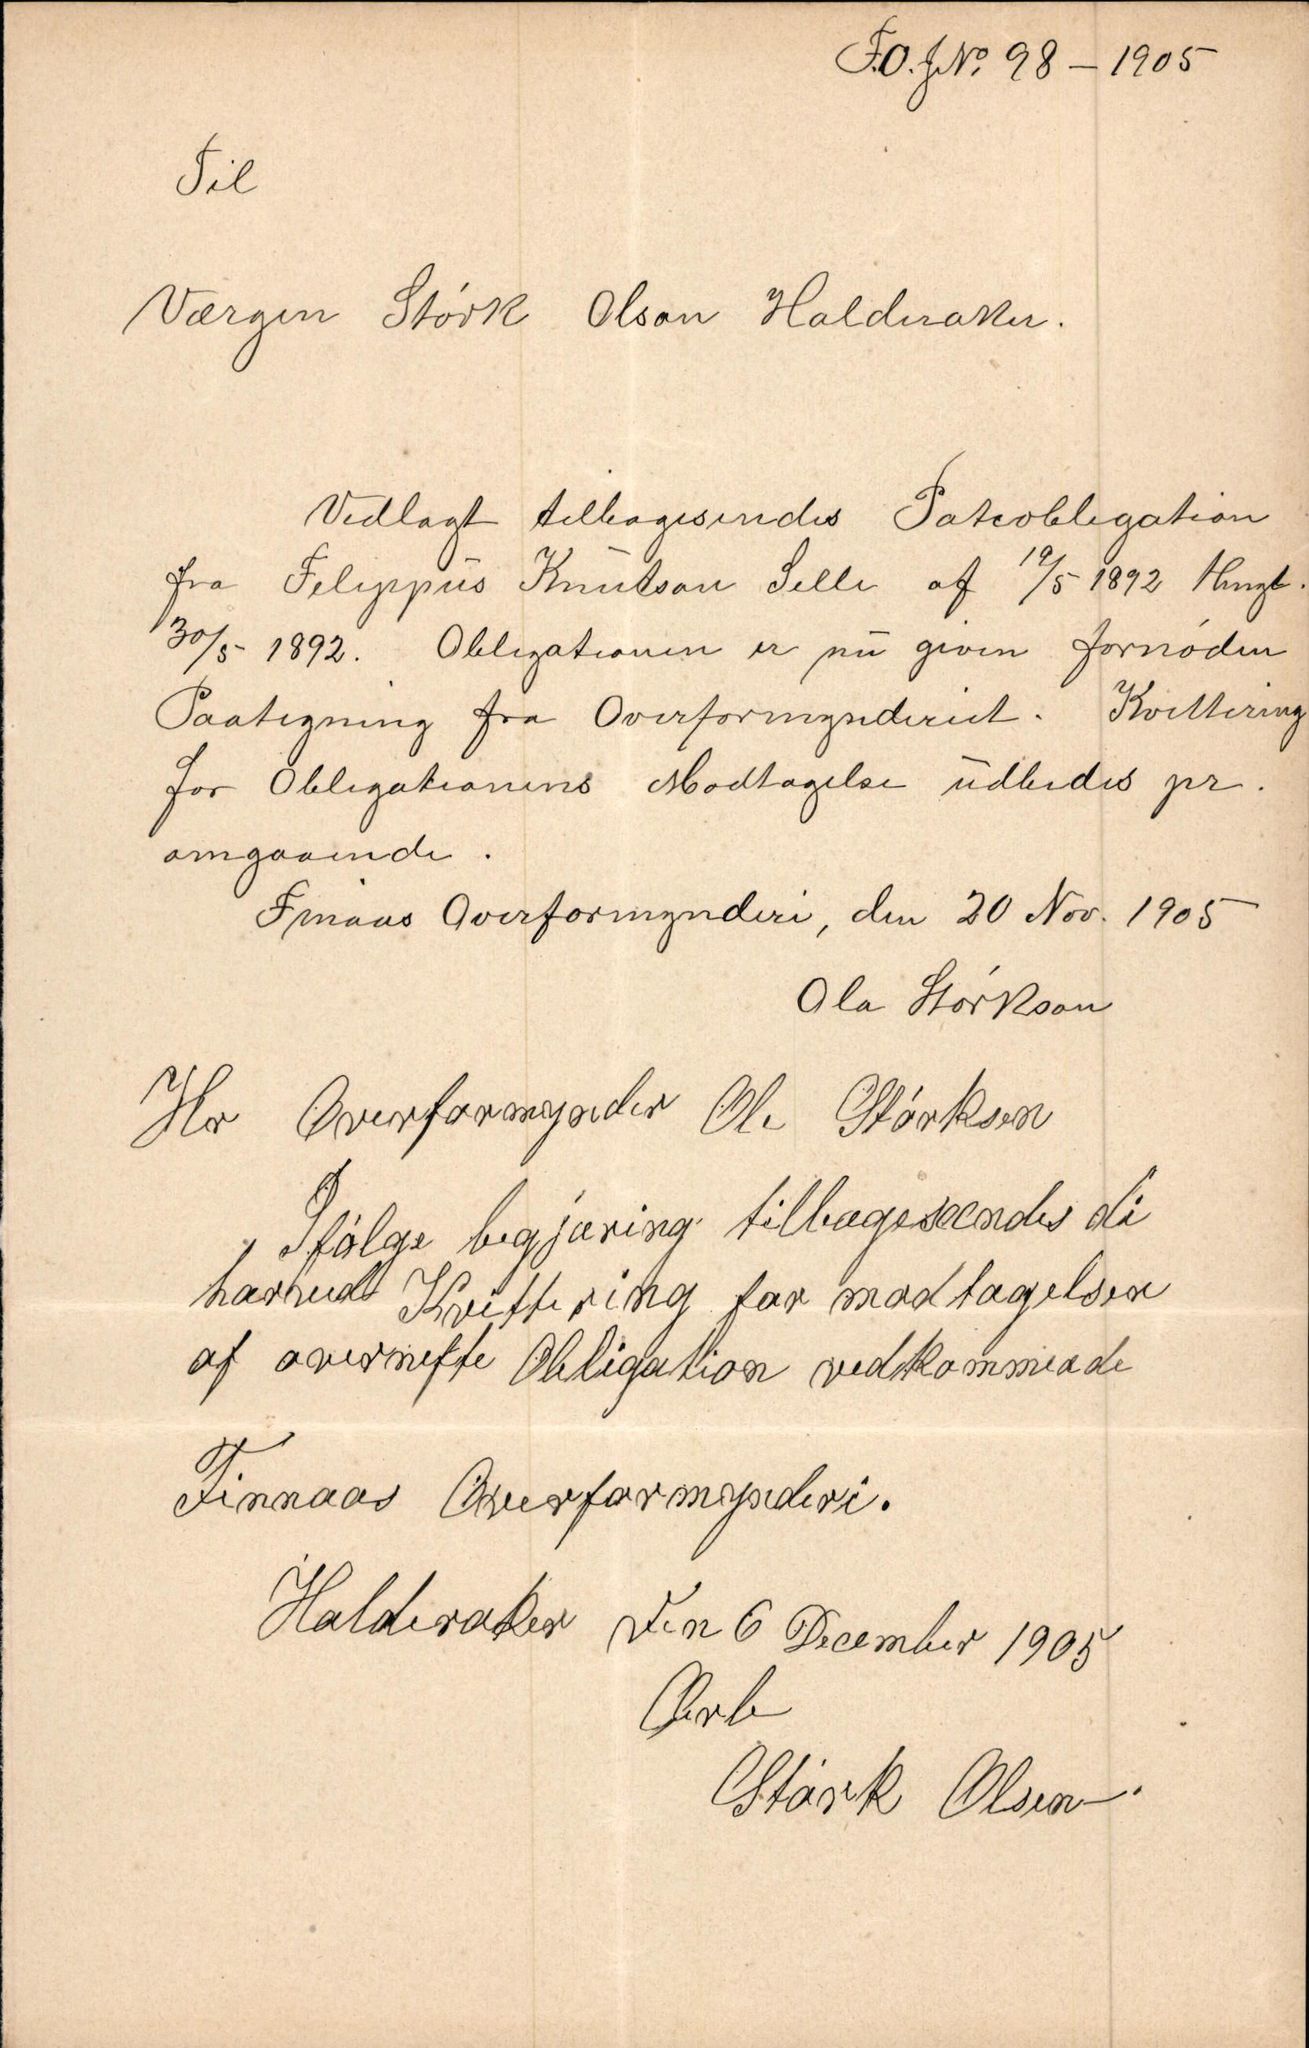 F.O.JNo. 98 – 1905
Til
Værgen Störk Olson Halderaker.
Vedlagt tilbagesendes Panteobligation
fra Filippus Knutson Selle af 19/5 1892 thingl.
30/5 1892. Obligationen er nu given fornöden
Paategning fra Overformynderiet. Kvittering
for Obligationens Modtagelse udbedes pr.
omgaaende.
Finaas Overformynderi, den 20 Nov. 1905
Ola Störkson
Hr Overformynder Ole Störksen
Ifölge begjæring tilbagesændes di
hærved Kvittering for modtagelsen
af overnefte Obligation vedkommende
Finnaas Overformynderi.
Halderaker den 6 December 1905
Ærb
Störk Olsen